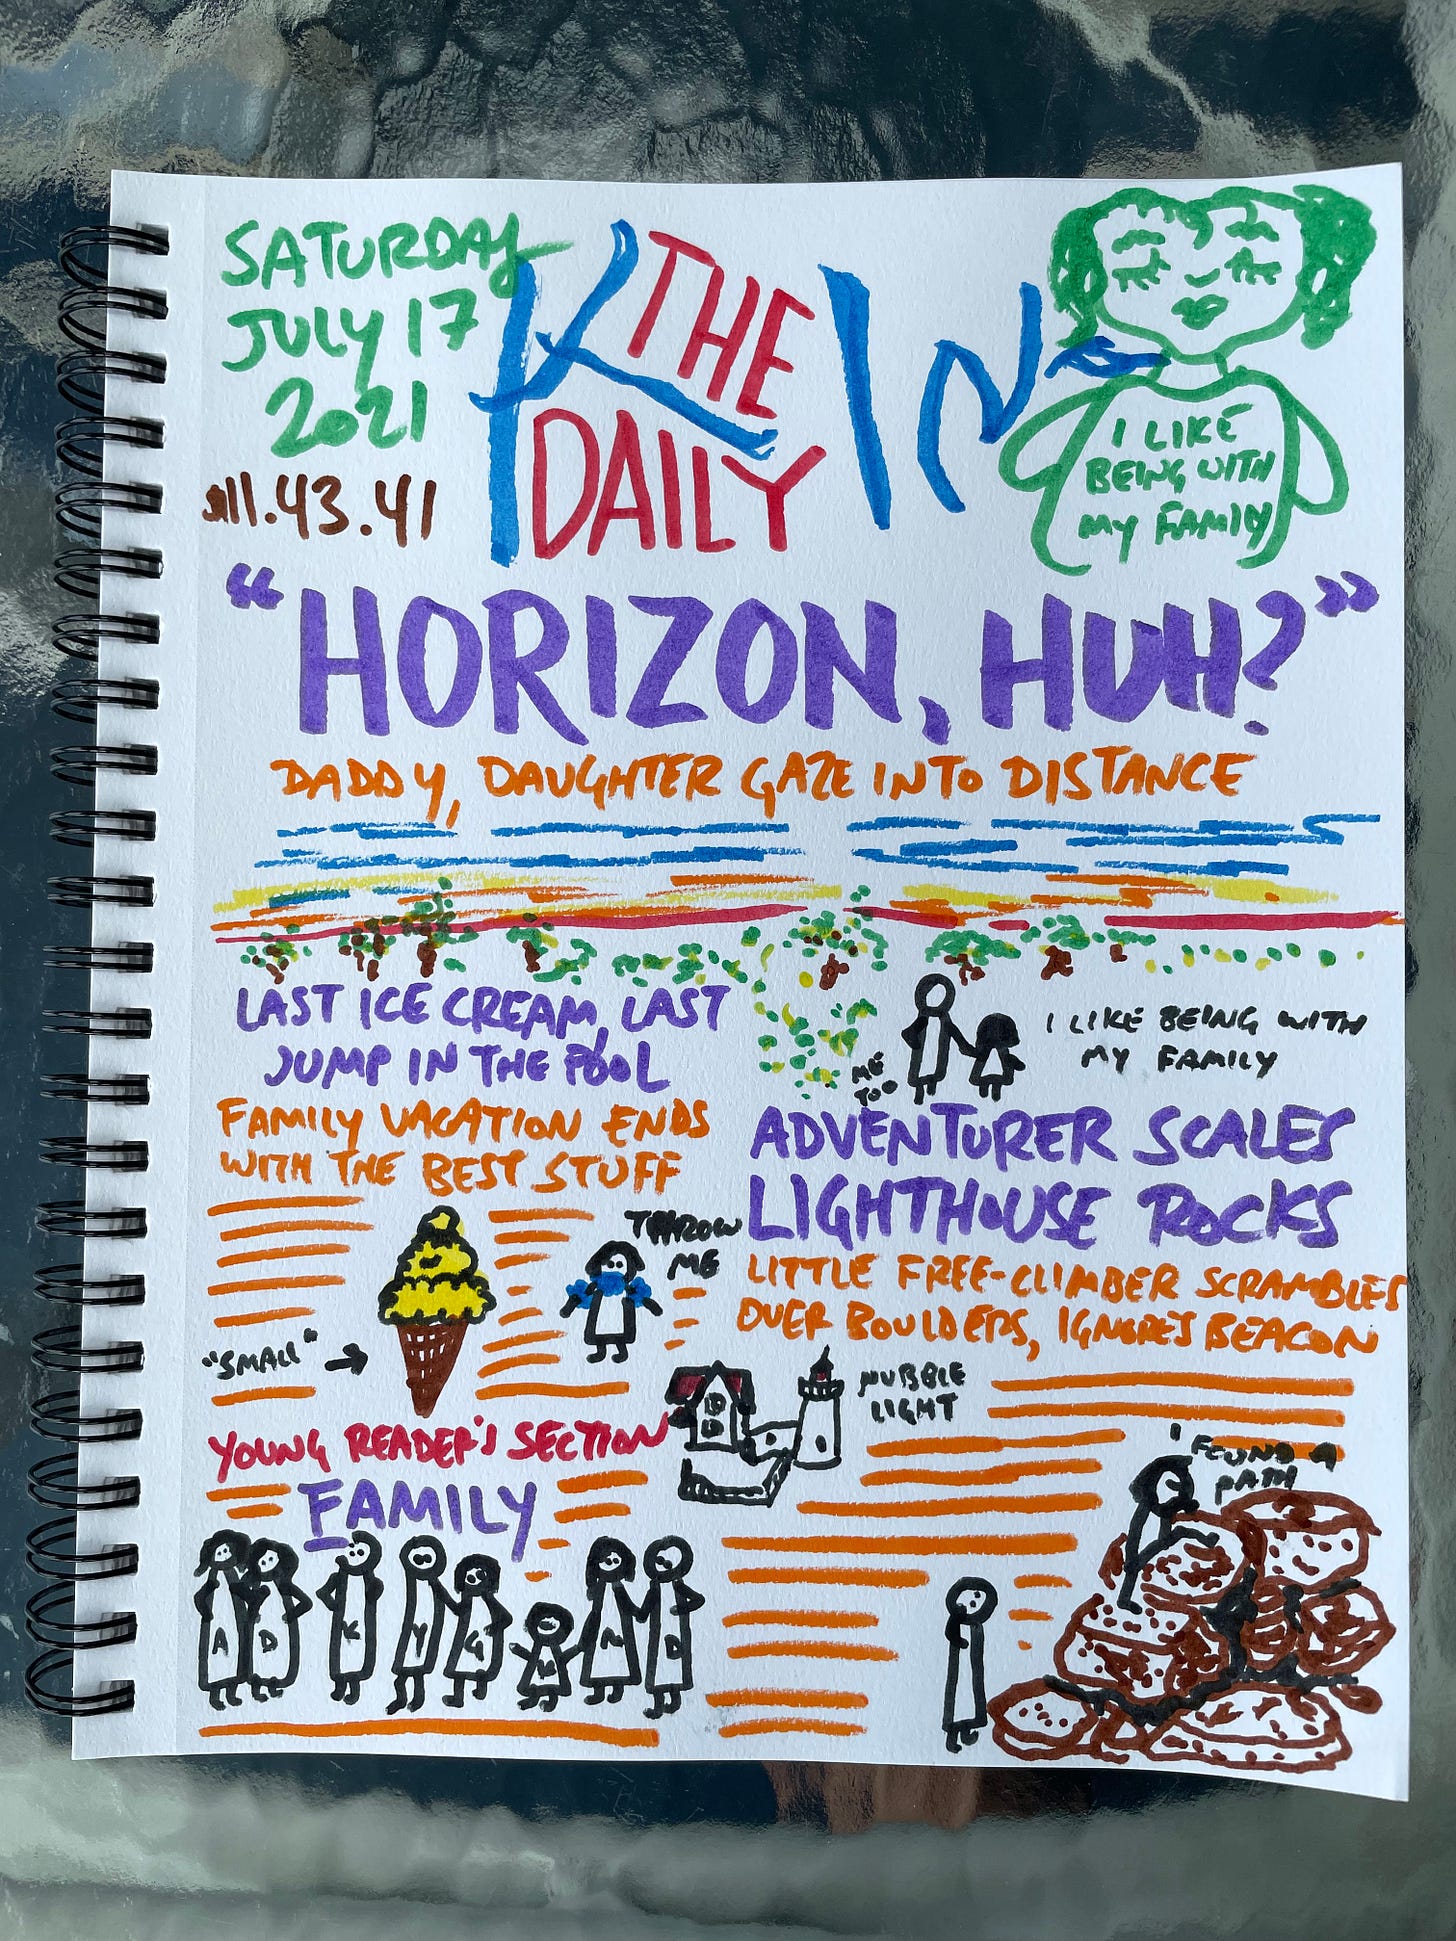 SATURDAY
JULY 17
2021
111.43.41
THE
DAILY
KIN
I LIKE
BEING WITH
MY FAMILY
"HORIZON, HUH?"
DADDY, DAUGHTER GAZE INTO DISTANCE
LAST ICE CREAM, LAST
JUMP IN THE POOL
FAMILY VACATION ENDS
WITH THE BEST STUFF
"SMALL"
THROW
ME
I LIKE BEING WITH
MY FAMILY
ME
TOO
ADVENTURER SCALES
LIGHTHOUSE ROCKS
LITTLE FREE-CLIMBER SCRAMBLES
OVER BOULDERS, IGNORES BEACON
NUBBLE
LIGHT
I FOUND A
PATH
YOUNG READER'S SECTION
FAMILY
A D K Y G N D